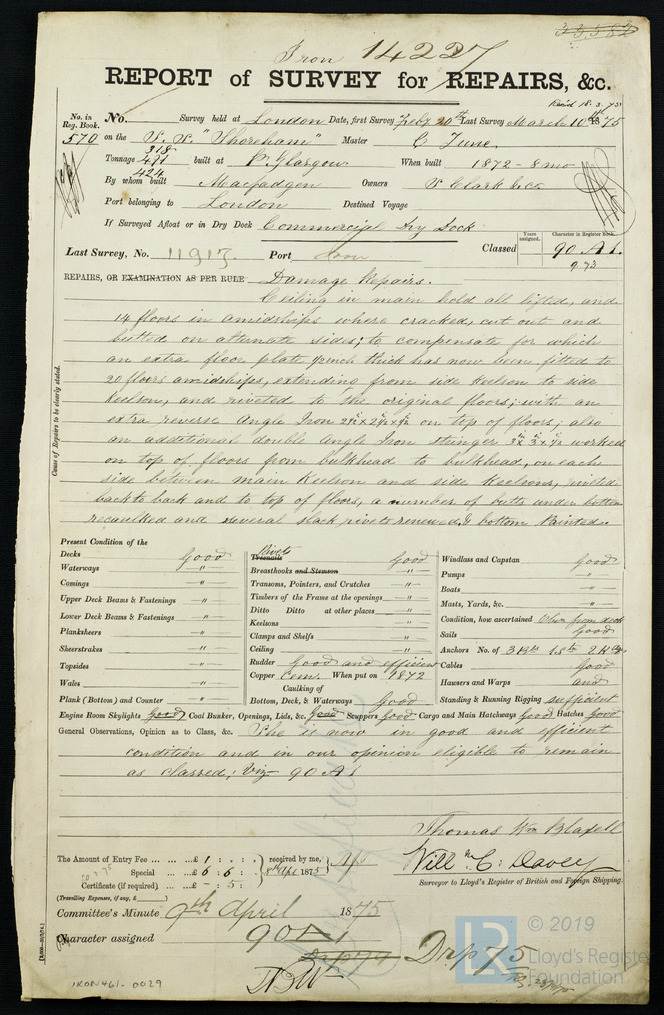 33582
Iron 14227
REPORT of SURVEY for REPAIRS, &c.
Rec'd 18.3.75
No. in Reg. Book. No. Survey held at London Date, first Survey Feby 20th Last Survey March 10th 1875
570 on the S.S. "Shoreham" Master C June
Tonnage 318 431 424 built at P. Glasgow When built 1872 - 8 mo
By whom built Macfadgen Owners S Clark & Co
Port belonging to London Destined Voyage
If Surveyed Afloat or in Dry Dock Commercial Dry Dock
Years assigned. Character in Register Book.
Last Survey, No. 11913 Port Classed 90 A1.
9.73
REPAIRS, OR EXAMINATION AS PER RULE Damage Repairs.
Ceiling in main hold all lifted, and
14 floors in amidships where cracked, cut out and
butted on alternate sides; to compensate for which
an extra floor plate inch thick has now been fitted to
20 floors amidships, extending from side Keelson to side
Keelson, and riveted to the original floors; with an
extra reverse Angle Iron 2½ x 2½ x on top of floors; also
an additional double Angle Iron stringer 3 x 3 x worked
on top of floors from bulkhead to bulkhead, on each
side between main Keelson and side Keelsons, riveted
back to back and to top of floors, a number of butts under bottom
recaulked and several slack rivets renewed, & bottom Painted.
Cause of Repairs to be clearly stated.
Present Condition of the
Decks Good
Waterways "
Comings "
Upper Deck Beams & Fastenings "
Lower Deck Beams & Fastenings "
Planksheers "
Sheerstrakes "
Topsides "
Wales "
Plank (Bottom) and Counter "
Rivets
Treenails Good
Breasthooks and Stemson "
Transoms, Pointers, and Crutches "
Timbers of the Frame at the openings "
Ditto Ditto at other places "
Keelsons "
Clamps and Shelfs "
Ceiling "
Rudder Good and efficient
Copper Cem. When put on 1872
Caulking of
Bottom, Deck, & Waterways Good
Windlass and Capstan Good
Pumps "
Boats "
Masts, Yards, &c. "
Condition, how ascertained from deck
Sails Good
Anchors No. of 3 Brs 1 St 2 Kgs
Cables Good
Hawsers and Warps and
Standing & Running Rigging sufficient
Engine Room Skylights Good Coal Bunker, Openings, Lids, &c. Good Scuppers Good Cargo and Main Hatchways Good Hatches Good
General Observations, Opinion as to Class, &c. She is now in good and efficient
condition and in our opinion eligible to remain
as classed; Viz 90 A1
Thomas Wm Blaxell
Will m C: Davey
Surveyor to Lloyd's Register of British and Foreign Shipping.
The Amount of Entry Fee £1 : :
Special £6 : 6 :
Certificate (if required) £ - : 5 :
(Travelling Expenses, if any, £ )
received by me, 8th Apl 1875
Committee's Minute 9th April 1875
Character assigned 90 A1
Drp 79
Drp 75
IRON461-0029
© 2019
LR Lloyd's Register Foundation